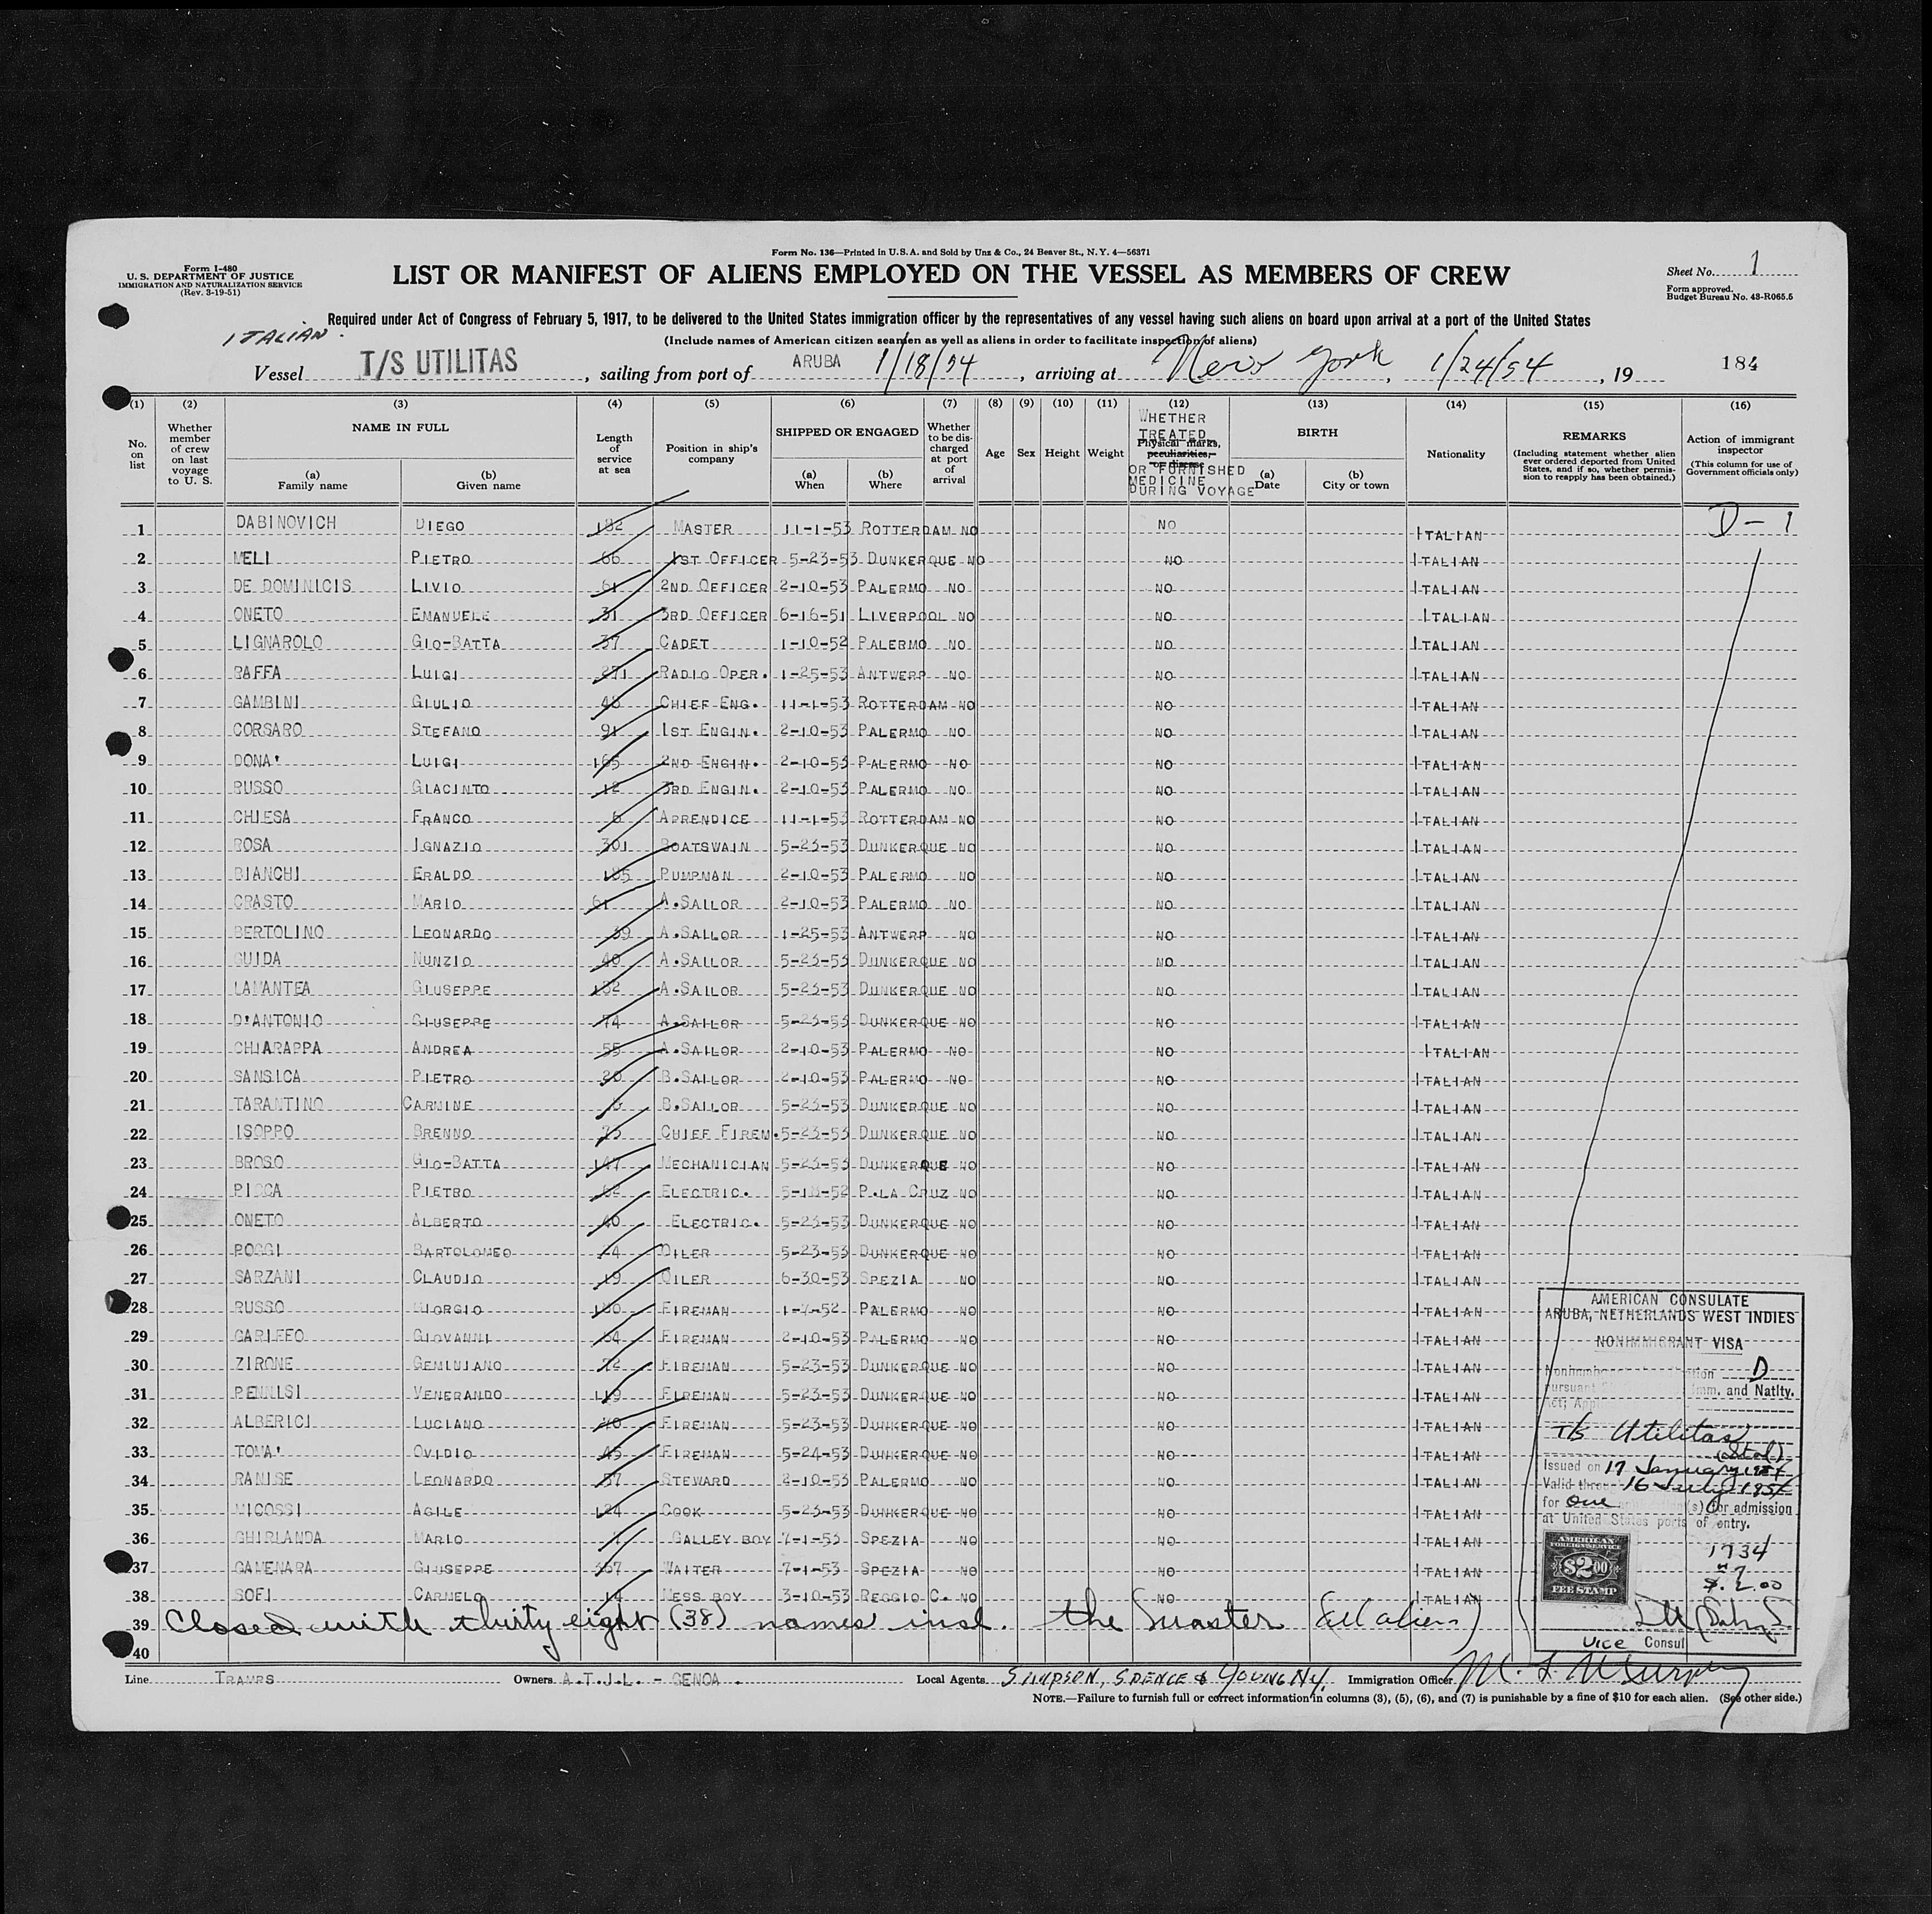 Form No. 136—Printed in U.S.A. and Sold by Unz & Co., 24 Beaver St., N. Y. 4—56371
Form I-480
U. S. DEPARTMENT OF JUSTICE
IMMIGRATION AND NATURALIZATION SERVICE
(Rev. 3-19-51)
LIST OR MANIFEST OF ALIENS EMPLOYED ON THE VESSEL AS MEMBERS OF CREW
Sheet No. 1
Form approved.
Budget Bureau No. 43-R065.5
Required under Act of Congress of February 5, 1917, to be delivered to the United States immigration officer by the representatives of any vessel having such aliens on board upon arrival at a port of the United States
(Include names of American citizen seamen as well as aliens in order to facilitate inspection of aliens)
ITALIAN
Vessel T/S UTILITAS, sailing from port of ARUBA 1/18/54, arriving at New York, 1/24/54, 19 184
(1) (2) (3) (4) (5) (6) (7) (8) (9) (10) (11) (12) (13) (14) (15) (16)
No. on list
Whether member of crew on last voyage to U. S.
NAME IN FULL
(a) Family name
(b) Given name
Length of service at sea
Position in ship's company
SHIPPED OR ENGAGED
(a) When
(b) Where
Whether to be discharged at port of arrival
Age Sex Height Weight
Physical marks, peculiarities, or disease
WHETHER TREATED OR FURNISHED MEDICINE DURING VOYAGE
BIRTH
(a) Date
(b) City or town
Nationality
REMARKS
(Including statement whether alien ever ordered deported from United States, and if so, whether permission to reapply has been obtained.)
Action of immigrant inspector
(This column for use of Government officials only)
1 DABINOVICH DIEGO 182 MASTER 11-1-53 ROTTERDAM NO NO ITALIAN D-1
2 MELI PIETRO 66 1ST OFFICER 5-23-53 DUNKERQUE NO NO ITALIAN
3 DE DOMINICIS LIVIO 61 2ND OFFICER 2-10-53 PALERMO NO NO ITALIAN
4 ONETO EMANUELE 31 3RD OFFICER 6-16-51 LIVERPOOL NO NO ITALIAN
5 LIGNAROLO GIO-BATTA 37 CADET 1-10-52 PALERMO NO NO ITALIAN
6 RAFFA LUIGI 271 RADIO OPER. 1-25-53 ANTWERP NO NO ITALIAN
7 GAMBINI GIULIO 48 CHIEF ENG. 11-1-53 ROTTERDAM NO NO ITALIAN
8 CORSARO STEFANO 91 1ST ENGIN. 2-10-53 PALERMO NO NO ITALIAN
9 DONA' LUIGI 165 2ND ENGIN. 2-10-53 PALERMO NO NO ITALIAN
10 RUSSO GIACINTO 12 3RD ENGIN. 2-10-53 PALERMO NO NO ITALIAN
11 CHIESA FRANCO 6 APRENDICE 11-1-53 ROTTERDAM NO NO ITALIAN
12 ROSA IGNAZIO 301 BOATSWAIN 5-23-53 DUNKERQUE NO NO ITALIAN
13 BIANCHI ERALDO 185 PUMPMAN 2-10-53 PALERMO NO NO ITALIAN
14 CRASTO MARIO 61 A.SAILOR 2-10-53 PALERMO NO NO ITALIAN
15 BERTOLINO LEONARDO 39 A.SAILOR 1-25-53 ANTWERP NO NO ITALIAN
16 GUIDA NUNZIO 40 A.SAILOR 5-23-53 DUNKERQUE NO NO ITALIAN
17 LAMANTEA GIUSEPPE 132 A.SAILOR 5-23-53 DUNKERQUE NO NO ITALIAN
18 D'ANTONIO GIUSEPPE 74 A.SAILOR 5-23-53 DUNKERQUE NO NO ITALIAN
19 CHIARAPPA ANDREA 55 A.SAILOR 2-10-53 PALERMO NO NO ITALIAN
20 SANSICA PIETRO 20 B.SAILOR 2-10-53 PALERMO NO NO ITALIAN
21 TARANTINO CARMINE B.SAILOR 5-23-53 DUNKERQUE NO NO ITALIAN
22 ISOPPO BRENNO CHIEF FIREM. 5-23-53 DUNKERQUE NO NO ITALIAN
23 BROSO GIO-BATTA 147 MECHANICIAN 5-23-53 DUNKERQUE NO NO ITALIAN
24 PICCA PIETRO 62 ELECTRIC. P.LA CRUZ NO NO ITALIAN
25 ONETO ALBERTO ELECTRIC. 5-23-53 DUNKERQUE NO NO ITALIAN
26 POGGI BARTOLOMEO OILER 5-23-53 DUNKERQUE NO NO ITALIAN
27 SARZANI CLAUDIO 19 OILER 6-30-53 SPEZIA NO NO ITALIAN
28 RUSSO GIORGIO FIREMAN 1-7-52 PALERMO NO NO ITALIAN
29 CARIFEO GIOVANNI FIREMAN 2-10-53 PALERMO NO NO ITALIAN
30 ZIRONE GEMINIANO FIREMAN 5-23-53 DUNKERQUE NO NO ITALIAN
31 PENNISI VENERANDO 119 FIREMAN 5-23-53 DUNKERQUE NO NO ITALIAN
32 ALBERICI LUCIANO FIREMAN 5-23-53 DUNKERQUE NO NO ITALIAN
33 TOMA' OVIDIO 45 FIREMAN 5-24-53 DUNKERQUE NO NO ITALIAN
34 RANISE LEONARDO 57 STEWARD 2-10-53 PALERMO NO NO ITALIAN
35 MICOSSI AGILE 124 COOK 5-23-53 DUNKERQUE NO NO ITALIAN
36 GHIRLANDA MARIO GALLEY BOY 7-1-53 SPEZIA NO NO ITALIAN
37 GAMENARA GIUSEPPE 367 WAITER 7-1-53 SPEZIA NO NO ITALIAN
38 SOFI CARMELO 14 MESS BOY 3-10-53 REGGIO C. NO NO ITALIAN
39 Closed with thirty eight (38) names incl. the Master (all aliens)
40
AMERICAN CONSULATE
ARUBA, NETHERLANDS WEST INDIES
NONIMMIGRANT VISA
D
Imm. and Natlty.
T/S Utilitas
(Ital)
Issued on 17 January 1954
Valid through 16 July 1954
for one (s) for admission
at United States ports of entry.
AMERICAN FOREIGN SERVICE
$2.00
FEE STAMP
1734
$2.00
Vice Consul
Line TRAMPS Owners A.T.J.L. - GENOA. Local Agents SIMPSON, SPENCE & YOUNG NY. Immigration Officer M. L. Murphy
NOTE.—Failure to furnish full or correct information in columns (3), (5), (6), and (7) is punishable by a fine of $10 for each alien. (See other side.)